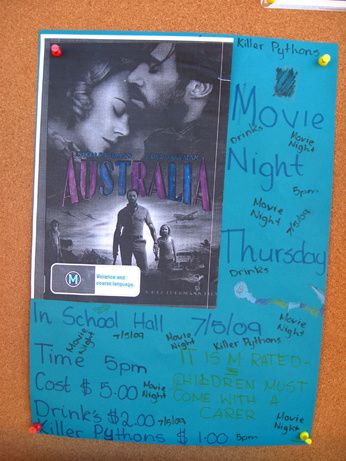 Killer Pythons
Movie
Drinks
Movie
Night
Night
5pm
Movie
Night
7/5/09
Thursday
Drinks
AUSTRALIA
M
Violence and
coarse language.
In School Hall 7/5/09
Movie
Night
Movie
Night
7/5/09
Movie
Night
Killer Pythons
Time 5pm
IT IS M RATED-
CHILDREN MUST
COME WITH A
CARER
Cost $ 5.00
Movie
Night
Drink's $2.00 7/5/09
Movie
Night
Killer Pythons $ 1.00 5pm